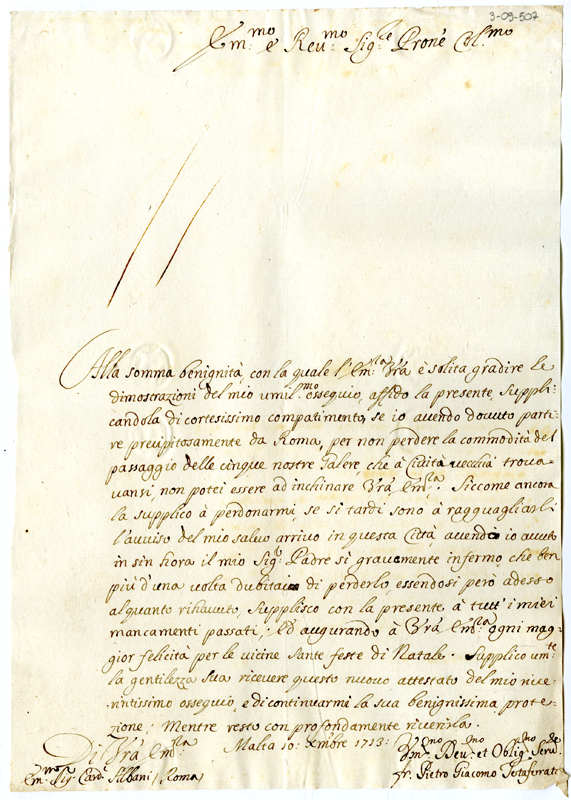 3-09-507
Em.mo e Reu.mo Sig.re Prone Col.mo
Alla somma benignità con la quale l'Em.za Vrã è solita gradire le
dimostrazioni del mio umil.mo ossequio, affido la presente, Suppli:
candola di cortesissimo compatimento, se io avendo dovuto parti:
re precipitosamente da Roma, per non perdere la commodità del
passaggio delle cinque nostre Galere, che à Cività vecchia trova:
vansi, non potei essere ad inchinare Vrã Em.za. Siccome ancora
la supplico à perdonarmi, se si tardi sono à ragguagliarli
l'avviso del mio salvo arrivo in questa Città, avendo io avuto
in sin hora il mio Sig.r Padre si gravamente infermo, che ben
più d'una volta dubitai di perderlo, essendosi però adesso
alquanto rihavuto, Supplisco con la presente à tutt'i miei
mancamenti passati; Ed augurando à Vrã Em.za ogni mag:
gior felicità per le vicine Sante feste di Natale. Supplico um.te
la gentilezza Sua ricevere questo nuovo attestato del mio rive:
rentissimo ossequio, e di continuarmi la sua benignissima prote:
zione; Mentre resto con profondamente riverirla.
Di Vrã Em.za Malta 10: Xmbre 1713:
Vm.mo Deu.mo et Oblig.mo Ser.re
Em.mo Sig.r Card. Albani (Roma) fr. Pietro Giacomo Testaferrata